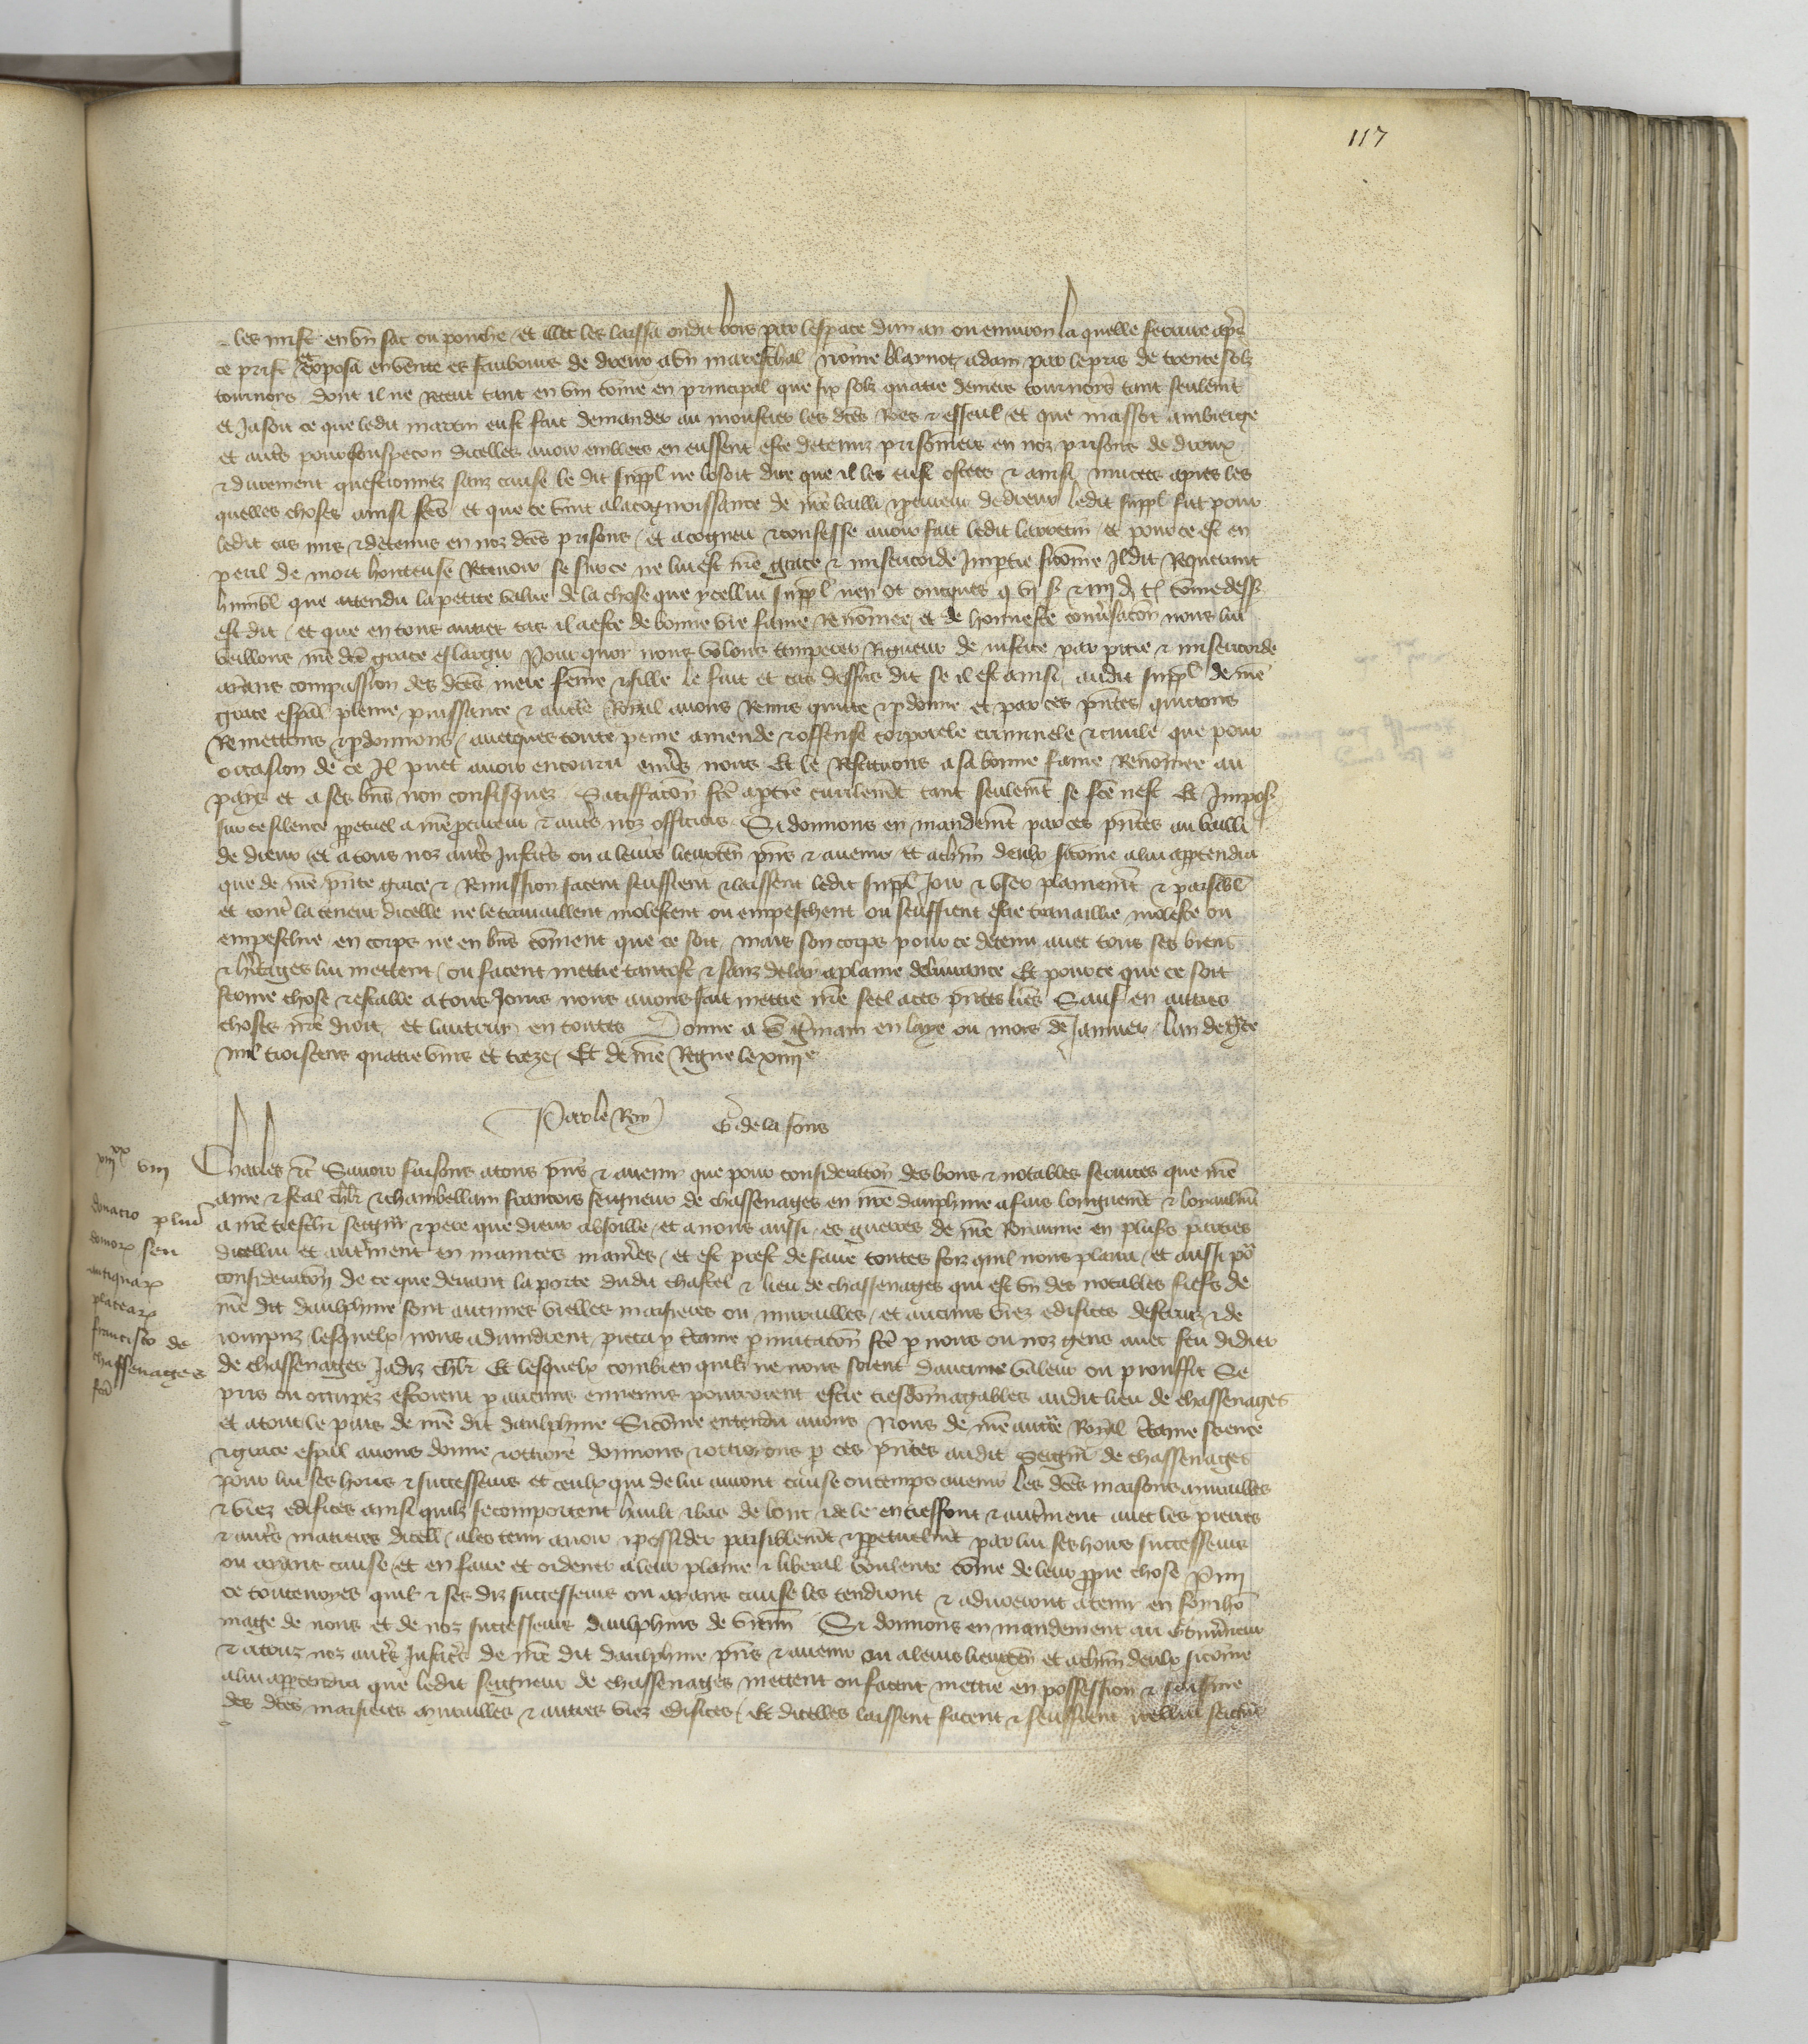 117
les mist en un sac ou pouche et illec les laissa oudit bois par lespace dun an ou environ la quelle ferraire apres
ce prist et exposa en vente es faubours de dreux a un mareschal nomme adam par le pris de trente solz
tournois dont il ne receut tant en vin comme en principal que six solz quatre deniers tournois tant seulemt
et Jasoit ce que ledit martin eust fait demander au moustier les dces Roes et esseul et que massot
et auts pour souspecon dicelles avoir emblees en eussent este detenuz prisonniers en noz prisons de dreux
et durement questionnez sanz cause le dit suppl ne losoit dire que il les eust ostees et ainsi mucees apres les
quelles choses ainsi fces et que ce vint a la cognoissance de nre bailli de dreux ledit suppl fut pour
ledit cas mis et detenus en noz dces prisons et a cogneu et confesse avoir fait ledit larrecin et pour ce est en
peril de mort honteuse Recevoir se sur ce ne lui est nre grace et misericorde Impartie sicomme Il dit Requerant
humbl que attendu la petite value de la chose que ycellui suppl nen ot oncques q vj s et iiij d t comme dess
est dit et que en tous autres cas il a este de bonne vie fame Renommee et de honneste conversacon nous lui
veillons nre dce grace eslargir Pour quoy nous voulons temperer Rigueur de justice par pitie et misericorde
aians compassion des dces mere femme et fille le fait et cas dessus dit se il est ainsi audit suppl de nre
grace espal pleine puissance et aucte Roial avons Remis quitte et pdonne et par ces pntes quittons
Remettons et pdonnons avecques toute peine amende et offense corporele criminele et civile que pour
occasion de ce Il puet avoir encouru envers nous Et le Restituons a sa bonne fame Renommee au
pays et a ses biens non confisquez Satisfacon fce a ptie civilemt tant seulemt se fce nest Et Impos
sur ce silence ppetuel a nre pcureur et auts noz officiers Si donnons en mandemt par ces pntes au bailli
de dreux et a tous noz auts Justiciers ou a leurs lieuxten pns et avenir et a chun deulx sicomme a lui apptendra
que de nre pnte grace et Remission facent seuffrent et laissent ledit suppl Joir et user plainemt et paisibl
et contr la teneur dicelle ne le travaillent molestent ou empeschent ou seuffrent estre travaillie moleste ou
empeschie en corps ne en biens comment que ce soit mais son corps pour ce detenu avec tous ses biens
et hitages lui mettent ou facent mettre tantost et sanz delay a plaine delivrance Et pour ce que ce soit
ferme chose et estable a tous Jours nous avons fait mettre nre seel a ces pntes lres Sauf en autres
choses nre droit et lautruy en toutes Donne a s germain en laye ou mois de Janvier lan de grace
mil troiscens quatre vins et treze Et de nre Regne le xiiije
Par le Roy G de la fons
Charles etc Savoir faisons a tous pns et avenir que pour consideracon des bons et notables services que nre
ame et feal chlr et chambellain francois seigneur de chassenages en nre dauphine a fais longuemt et loyaulmt
a nre treschr seigr et pere que dieux absoille et a nous aussi es guerres de nre Royaume en plusrs parties
dicellui et autrement en maintes manieres et est prest de faire toutes foiz quil nous plaira et aussi po
consideracon de ce que devant la porte dudit chastel et lieu de chassenages qui est un des notables fiefs de
nre dit daulphine sont aucunes vielles maisieres ou murailles et aucuns viez edifices destruiz et de
rompuz lesquelx nous advindrent pieca p ctaine pmutacon fce p nous ou noz gens avec feu didier
de chassenages Jadiz chlr Et lesquelx combien quilz ne nous soient daucune valeur ou prouffit Se
pris ou occupez estoient p aucuns ennemis pourroient estre tresdommagables audit lieu de chassenages
et a tout le pais de nre dit daulphine Sicomme entendu avons Nous de nre aucte Roial ctaine science
et grace espal avons donne et ottroie donnons et ottroions p ces pntes audit Seigr de chassenages
pour lui ses hoirs et successeurs et ceulx qui de lui auront cause ou temps avenir les dces maisons murailles
et viez edifices ainsi quilz se comportent hault et bas de lonc et de le en tresfont et autrement avec les pierres
et auts matieres dicell a les tenir avoir et possider paisiblemt et ppetuelmt par lui ses hoirs successeurs
ou aians cause et en faire et ordener a leur plaine et liberal voulente comme de leur ppre chose Pmi
ce toutevoyes quil et ses diz successeurs ou aians cause les tendront et advoeront a tenir en foy et hom
mage de nous et de noz successeurs daulphins de viennois Si donnons en mandement au Gouverneur
et a touz noz auts Justiciers de nre dit daulphine pns et avenir ou a leurs lieuxten et a chun deulx sicomme
a lui apptendra que ledit seigneur de chassenages mettent ou facent mettre en possession et saisine
des dces maisieres murailles et autres viez edifices Et dicelles laissent facent et seuffrent icellui seigneur
viijxx viij
donacio plur
domorum seu
antiquarum
platearum
francisco de
chassenages
fca